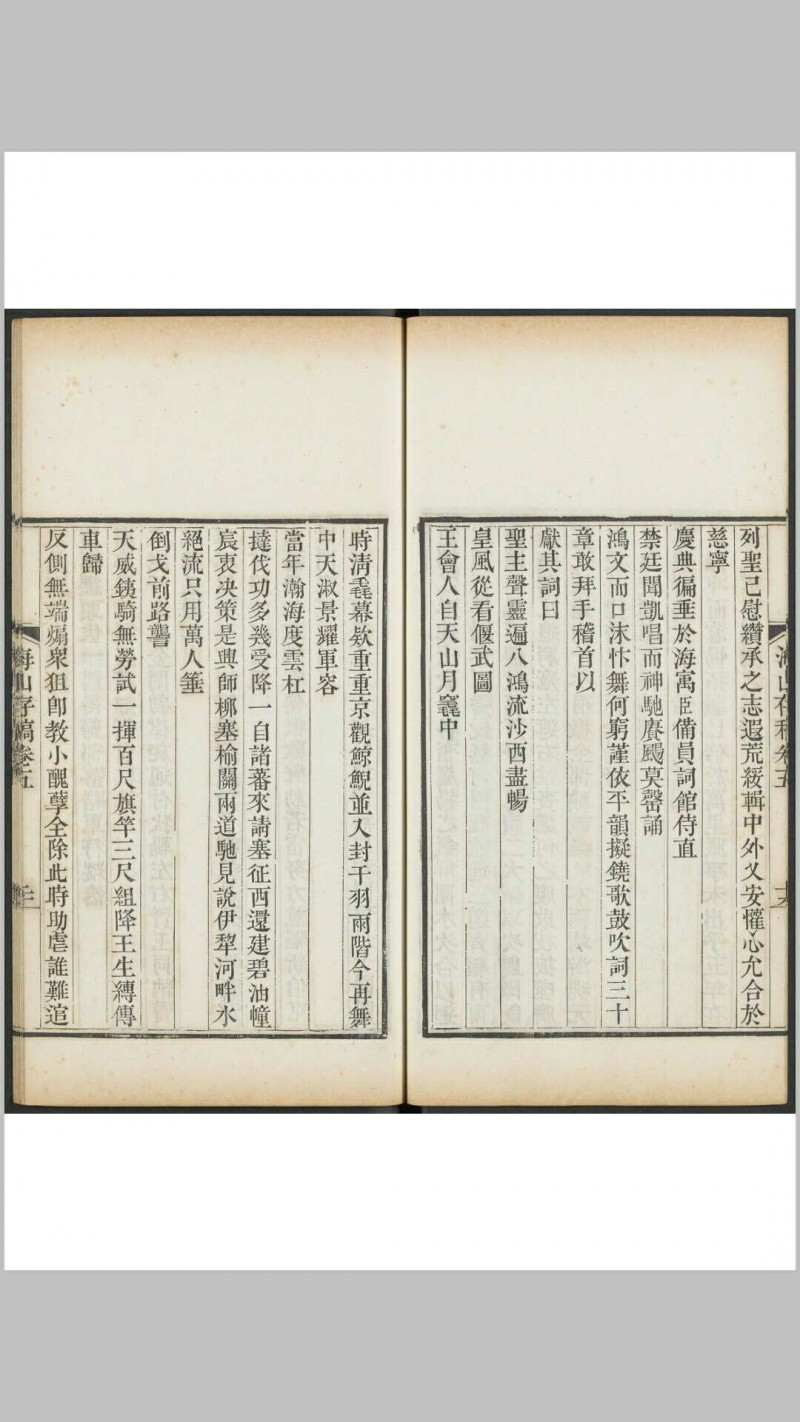 列聖已慰纘承之志遐荒綏輯中外乂安懽心允合於
慈寧
慶典徧垂於海㝢臣備員詞館侍直
禁廷聞凱唱而神馳賡颺莫罄誦
鴻文而口沫忭舞何窮謹依平韻擬鐃歌鼓吹詞三十
章敢拜手稽首以
獻其詞曰
聖主聲靈遍八鴻流沙西盡暢
皇風從看偃武圖
王會人自天山月竁中
時清毳幕欵重重京觀鯨鯢並入封干羽兩階今再舞
中天淑景耀軍容
當年瀚海度雲杠
撻伐功多幾受降一自諸蕃來請塞征西還建碧油幢
宸衷決策是興師柳塞榆關兩道馳見說伊犂河畔水
絕流只用萬人箠
倒戈前路讋
天威銕騎無勞試一揮百尺旗竿三尺組降王生縛傳
車歸
反側無端煽衆狙卽教小醜孽全除此時助虐誰難逭
海山存稿卷五